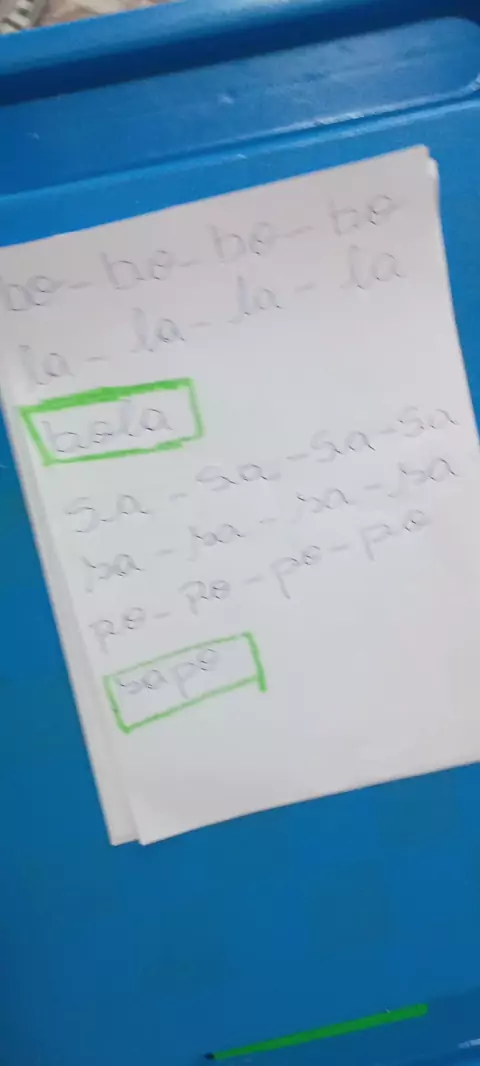 bo - bo - bo - bo
la - la - la - la
bola
sa - sa - sa - sa
sa - sa - sa - sa
po - po - po - po
sapo